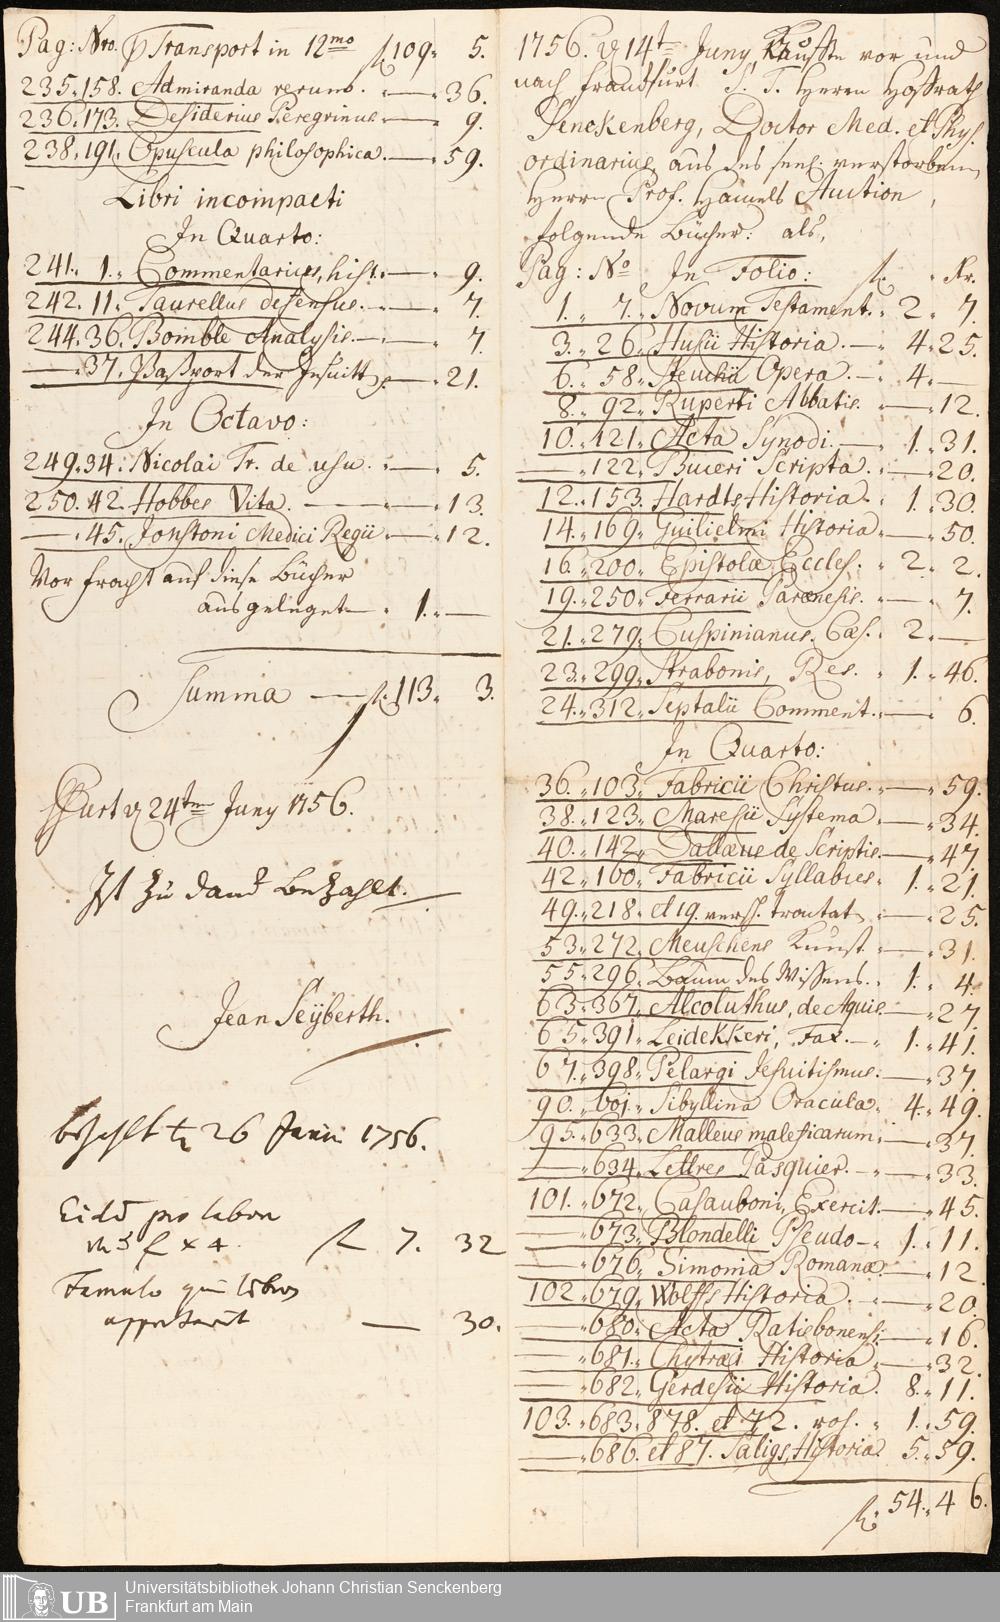 Pag: Nro. p Transport in 12mo fl 109. 5.
235. 158. Admiranda rerum. 36.
236. 173. Desiderius Peregrinus 9.
238. 191. Opuscula philosophica. 59.
Libri incompacti
In Quarto:
241. 1. Commentarius, hist. 9.
242. 11. Taurellus defensus. 7.
244. 36. Bomble Analysis. 7.
— 37. Paßport der Jesuitten 21.
In Octavo:
249. 34. Nicolai Tr. de usu. 5.
250. 42. Hobbes Vita. 13.
— 45. Jonstoni Medici Regii 12.
Vor fracht auf diese Bücher
ausgeleget 1. —
Summa — fl. 113. 3.
Ffurt d 24ten Juny 1756.
Ist zu danck bezahlt.
Jean Seÿberth.
bezahlt d. 26 Junii 1756.
Eidem pro labore
fl 7. 32
Famulo qui libros
apportavit — 30.
1756. d 14t Juny, Kauffte vor und
nach franckfurt S. T. Herrn Hoffrath
Senckenberg, Doctor Med. et Phys.
ordinarius, aus des seel. verstorbenen
Herrn Prof. Hamels Auction,
folgende Bücher: als,
Pag: No In Folio: fl. Kr.
1. 7. Novum Testament. 2. 7.
3. 26. Husii Historia. 4. 25.
6. 58. Steuchii Opera. 4. —
8. 92. Ruperti Abbatis. 12.
10. 121. Acta Synodi. 1. 31.
— 122. Buceri Scripta. 20.
12. 153. Hardts Historia. 1. 30.
14. 169. Guilielmi Historia 50.
16. 200. Epistolæ Eccles. 2. 2.
19. 250. Ferrarii Parænesis. 7.
21. 279. Cuspinianus. Cæs. 2. —
23. 299. Strabonis, Res. 1. 46.
24. 312. Septalii Comment. 6.
In Quarto:
36. 103. Fabricii Christus. 59.
38. 123. Maresii Systema 34.
40. 142. Dallæus de Scriptis. 47.
42. 160. Fabricii Syllabus. 1. 21.
49. 218. et 19. versch. tractat 25.
53. 272. Meuschens Kunst. 31.
55. 296. Baum des Wissens. 1. 4.
63. 367. Alcoluthus, de Aquis. 27.
65. 391. Leidekkeri, Fax. 1. 41.
67. 398. Pelargi Jesuitismus. 37.
90. 601. Sibyllina Oracula. 4. 49.
95. 633. Malleus maleficarum. 37.
— 634. Lettres Pasquier. 33.
101. 672. Casauboni, Exercit. 45.
— 673. Blondelli Pseudo- 1. 11.
— 676. Simonia Romana. 12.
102. 679. Wolffs Historia. 20.
— 680. Acta Ratisbonensi. 16.
— 681. Chytræi Historia 32.
— 682. Gerdesii Historia. 8. 11.
103. 683. 878. et 72. 1. 59.
— 686. et 87. Saligs, Historia 5. 59.
fl. 54. 46.
UB
Universitätsbibliothek Johann Christian Senckenberg
Frankfurt am Main